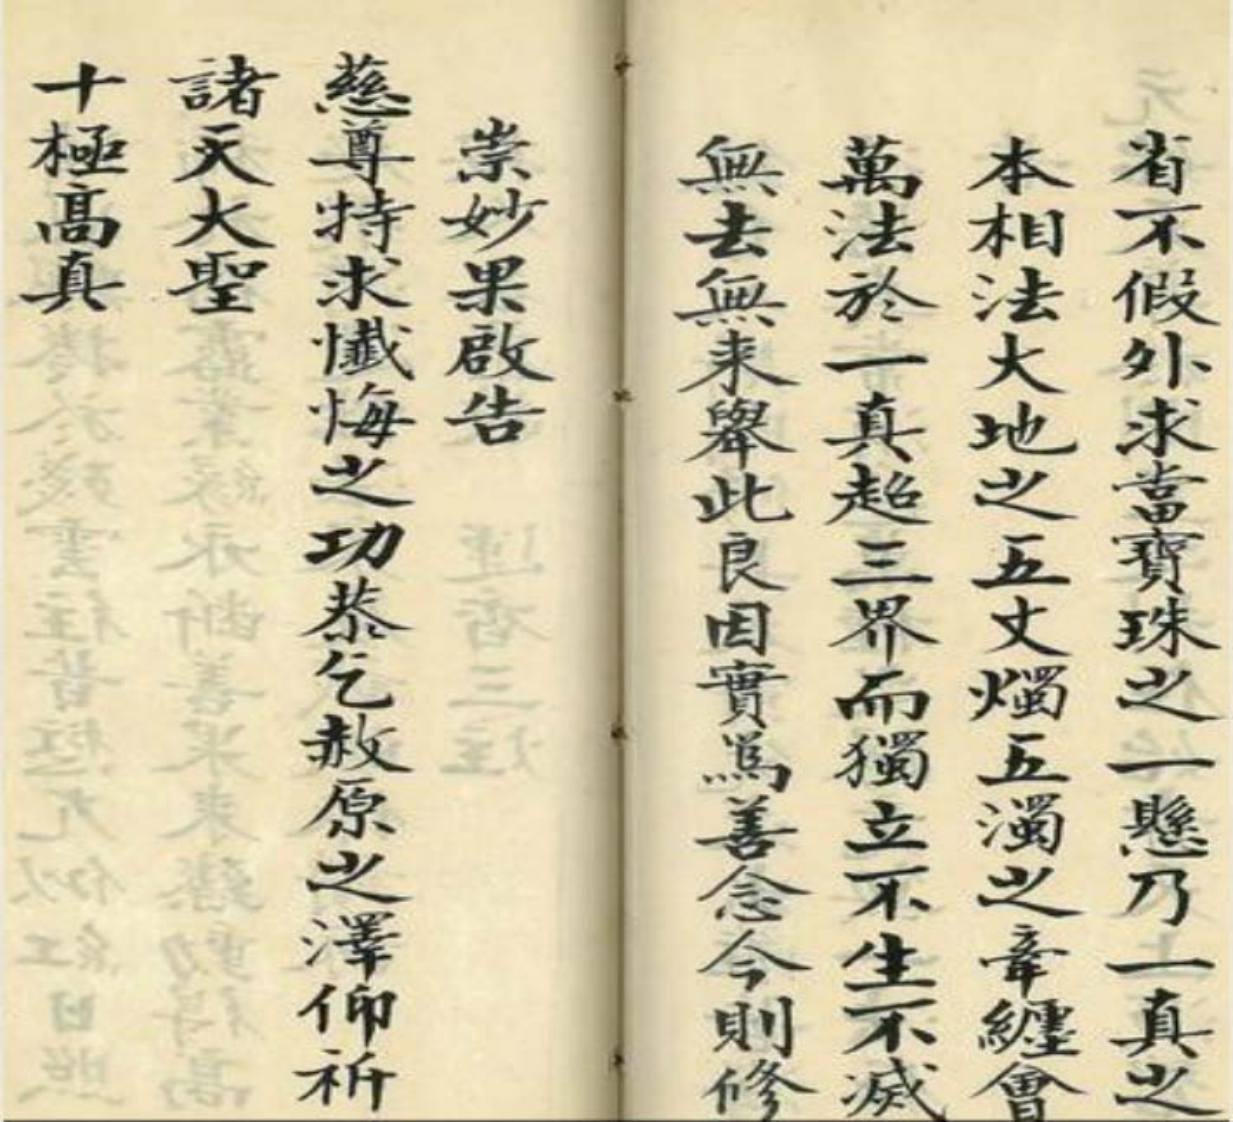 省不假外求當寶珠之一懸乃一真之
本相法大地之五丈燭五濁之牽纏會
萬法於一真超三界而獨立不生不滅
無去無来舉此良因實爲善念今則修
崇妙果啟告
慈尊特求懺悔之功恭乞赦原之澤仰祈
諸天大聖
十極高真